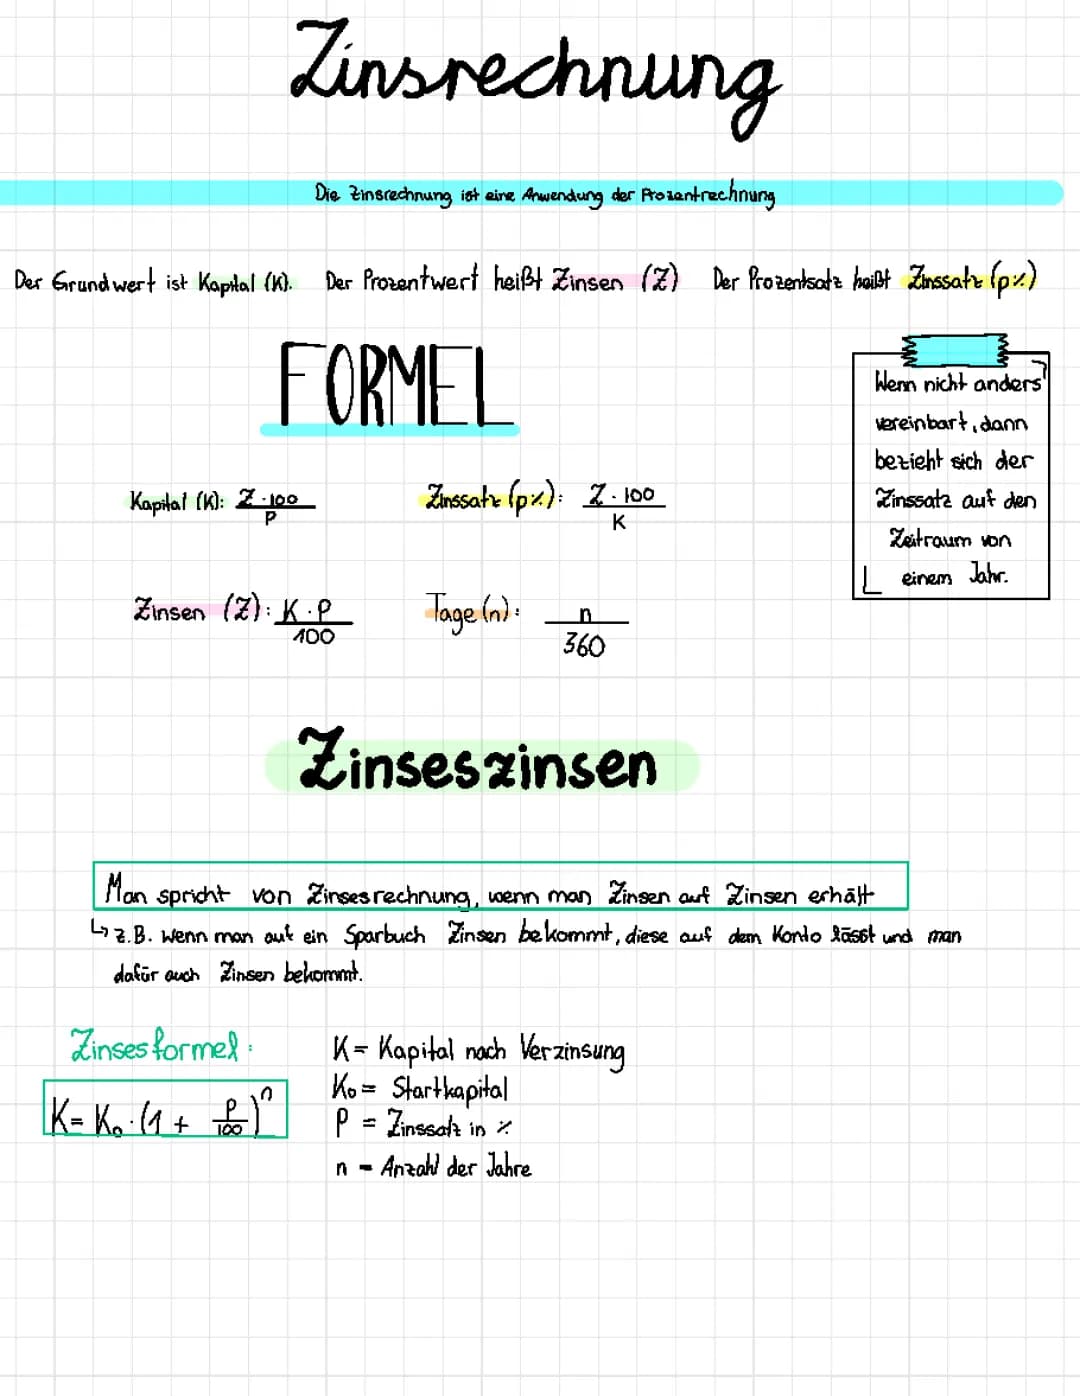 Zinsrechnung
Die Zinsrechnung ist eine Anwendung der Prozentrechnung
Der Grundwert ist Kapital (K). Der Prozentwert heißt Zinsen (Z) Der Prozentsatz heißt Zinssatz (p%)
FORMEL
Wenn nicht anders
vereinbart, dann
bezieht sich der
Zinssatz auf den
Zeitraum von
einem Jahr.
Kapital (K): Z · 100 / P
Zinssatz (p%): Z · 100 / K
Zinsen (Z): K · P / 100
Tage (n): n / 360
Zinseszinsen
Man spricht von Zinsesrechnung, wenn man Zinsen auf Zinsen erhält
↳ z.B. wenn man auf ein Sparbuch Zinsen bekommt, diese auf dem Konto lässt und man
dafür auch Zinsen bekommt.
Zinsesformel:
K = K₀ · (1 + P/100)ⁿ
K = Kapital nach Verzinsung
K₀ = Startkapital
P = Zinssatz in %
n = Anzahl der Jahre